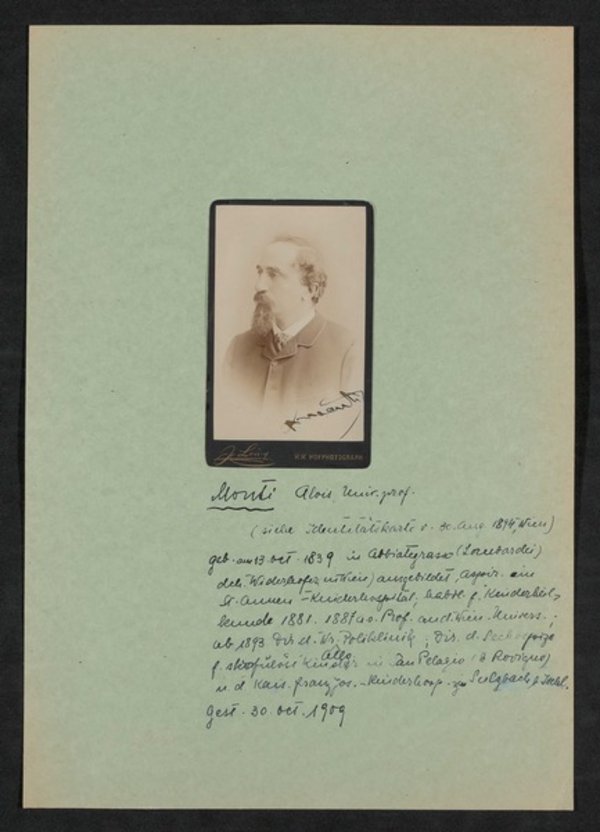 J. Löwy
K.K. HOFPHOTOGRAPH.
Monti Alois, Univ. prof.
(siehe Identitätskarte v. 30. Aug. 1894, Wien)
geb. am 13 oct. 1839 in Abbiategrasso (Lombardei)
ausgebildet, aspir. am
St. Annen-Kinderhospital; habil. f. Kinderheil-
kunde 1881. 1887 a.o. Prof. an d. Wien. Univers.;
ab 1893 Dir. d. Wr. Poliklinik; Dir. d. Seehospize
f. skrofulöse Kinder in San Pelagio (b Rovigno)
u. d. Kais. Franz Jos.-Kinderhosp. zu Sulzbach b Ischl.
Gest. 30. oct. 1909